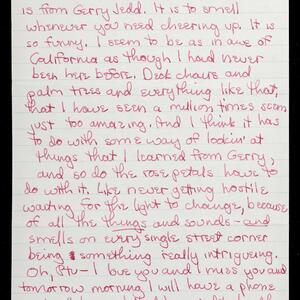 is from Gerry Jedd. It is to smell
whenever you need cheering up. It is
so funny. I seem to be as in awe of
California as though I had never
been here before. Deck chairs and
palm trees and everything like that,
that I have seen a million times seem
just too amazing. And I think it has
to do with some way of lookin' at
things that I learned from Gerry,
and so do the rose petals have to
do with it. Like never getting hostile
waiting for the light to change, because
of all the things and sounds and
smells on every single street corner
being something really intriguing.
Oh, Stu - I love you and I miss you and
tomorrow morning I will have a phone